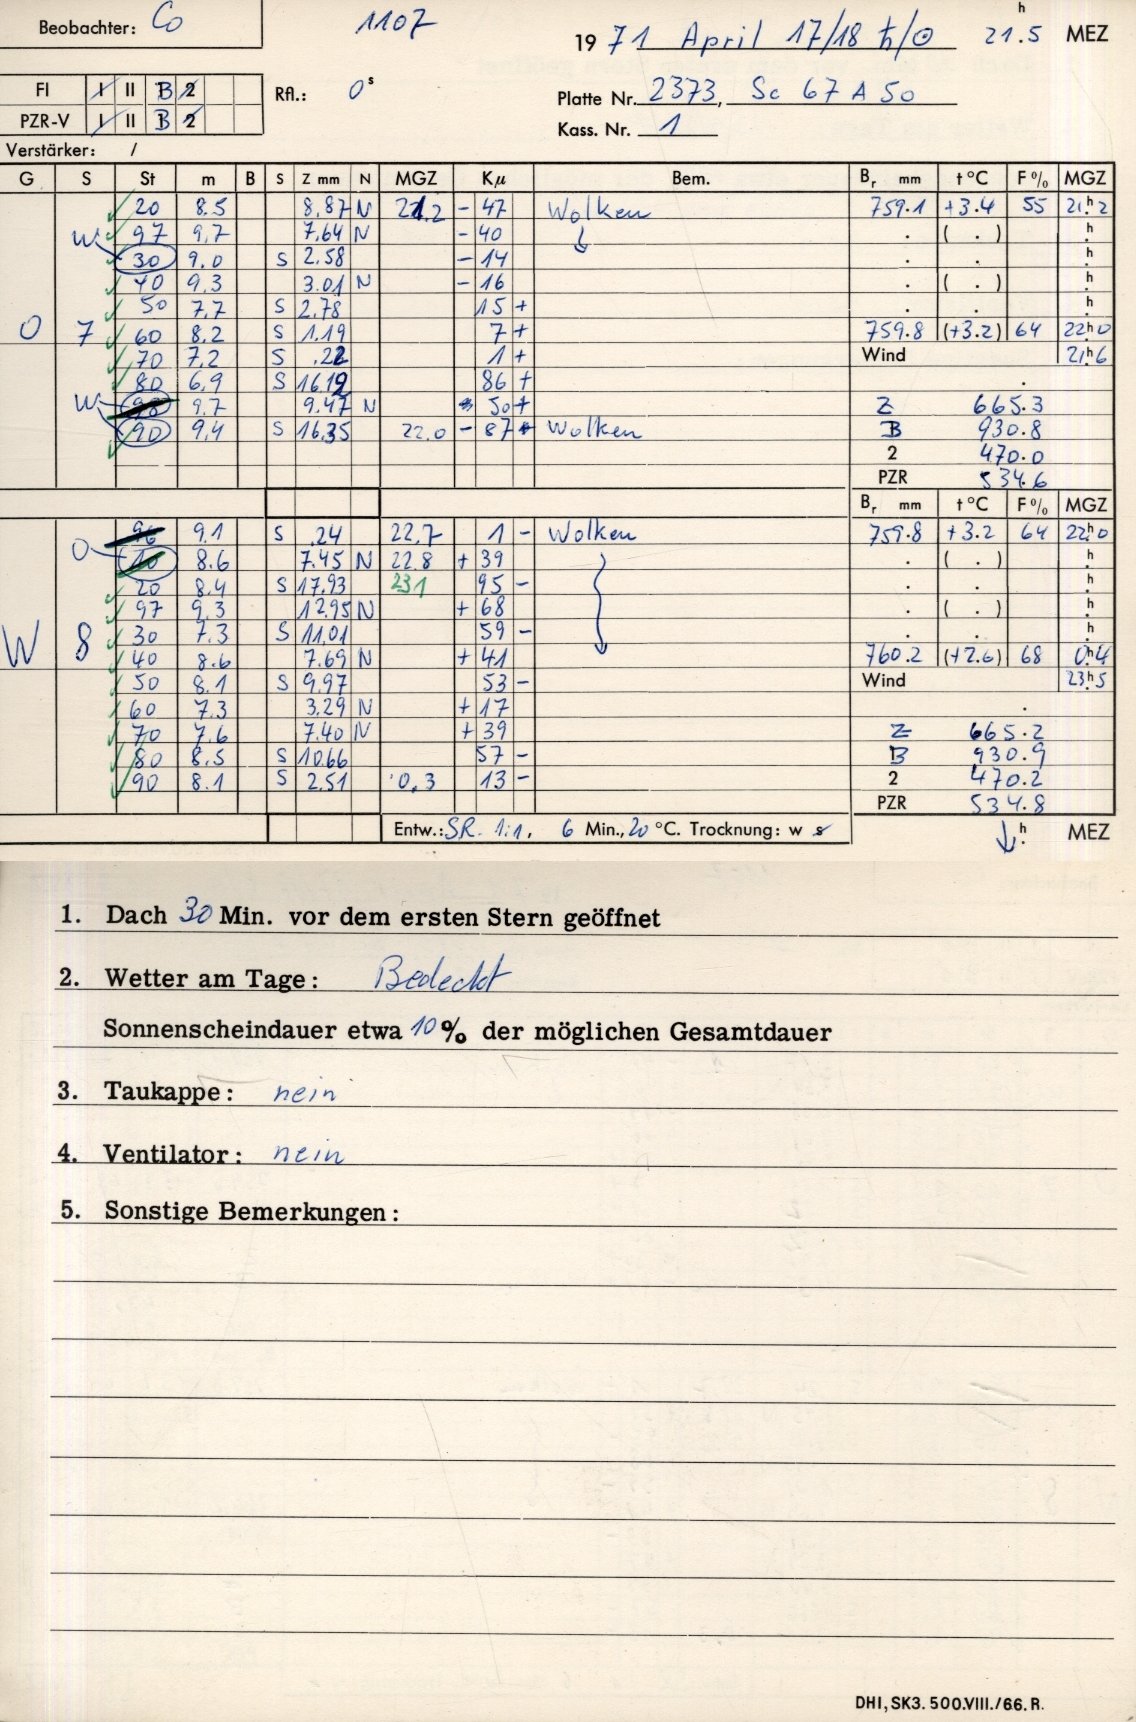 Beobachter: Co
1107
19 71 April 17/18 ♄/☉ 21.5 h MEZ
FI I II B 2
Rfl.: 0 s
Platte Nr. 2373, Sc 67 A 50
PZR-V I II B 2
Kass. Nr. 1
Verstärker: /
G S St m B S Z mm N MGZ Kµ Bem. Br mm t °C F % MGZ
20 8.5 8.87 N 21.2 - 47 Wolken 759.1 +3.4 55 21h2
W 97 9.7 7.64 N - 40 . ( . ) h
30 9.0 S 2.58 - 14 . . h
40 9.3 3.01 N - 16 . ( . ) h
50 7.7 S 2.78 15 + . . h
O 7 60 8.2 S 1.19 7 + 759.8 (+3.2) 64 22h0
70 7.2 S .22 1 + Wind 21h6
80 6.9 S 16.19 86 + .
W 90 9.7 9.47 N 50 + Z 665.3
90 9.4 S 16.35 22.0 - 87 Wolken B 930.8
2 470.0
PZR 534.6
Br mm t °C F % MGZ
96 9.1 S .24 22.7 1 - Wolken 759.8 +3.2 64 22h0
O 10 8.6 7.45 N 22.8 + 39 . ( . ) h
20 8.4 S 17.93 231 95 - . . h
97 9.3 12.95 N + 68 . ( . ) h
W 8 30 7.3 S 11.01 59 - . . h
40 8.6 7.69 N + 41 760.2 (+2.6) 68 0h4
50 8.1 S 9.97 53 - Wind 23h5
60 7.3 3.29 N + 17 .
70 7.6 7.40 N + 39 Z 665.2
80 8.5 S 10.66 57 - B 930.9
90 8.1 S 2.51 0.3 13 - 2 470.2
PZR 534.8
Entw.: SR. 1:1, 6 Min., 20 °C. Trocknung: w s h MEZ
1. Dach 30 Min. vor dem ersten Stern geöffnet
2. Wetter am Tage: Bedeckt
Sonnenscheindauer etwa 10 % der möglichen Gesamtdauer
3. Taukappe: nein
4. Ventilator: nein
5. Sonstige Bemerkungen:
DHI, SK3. 500.VIII./66. R.